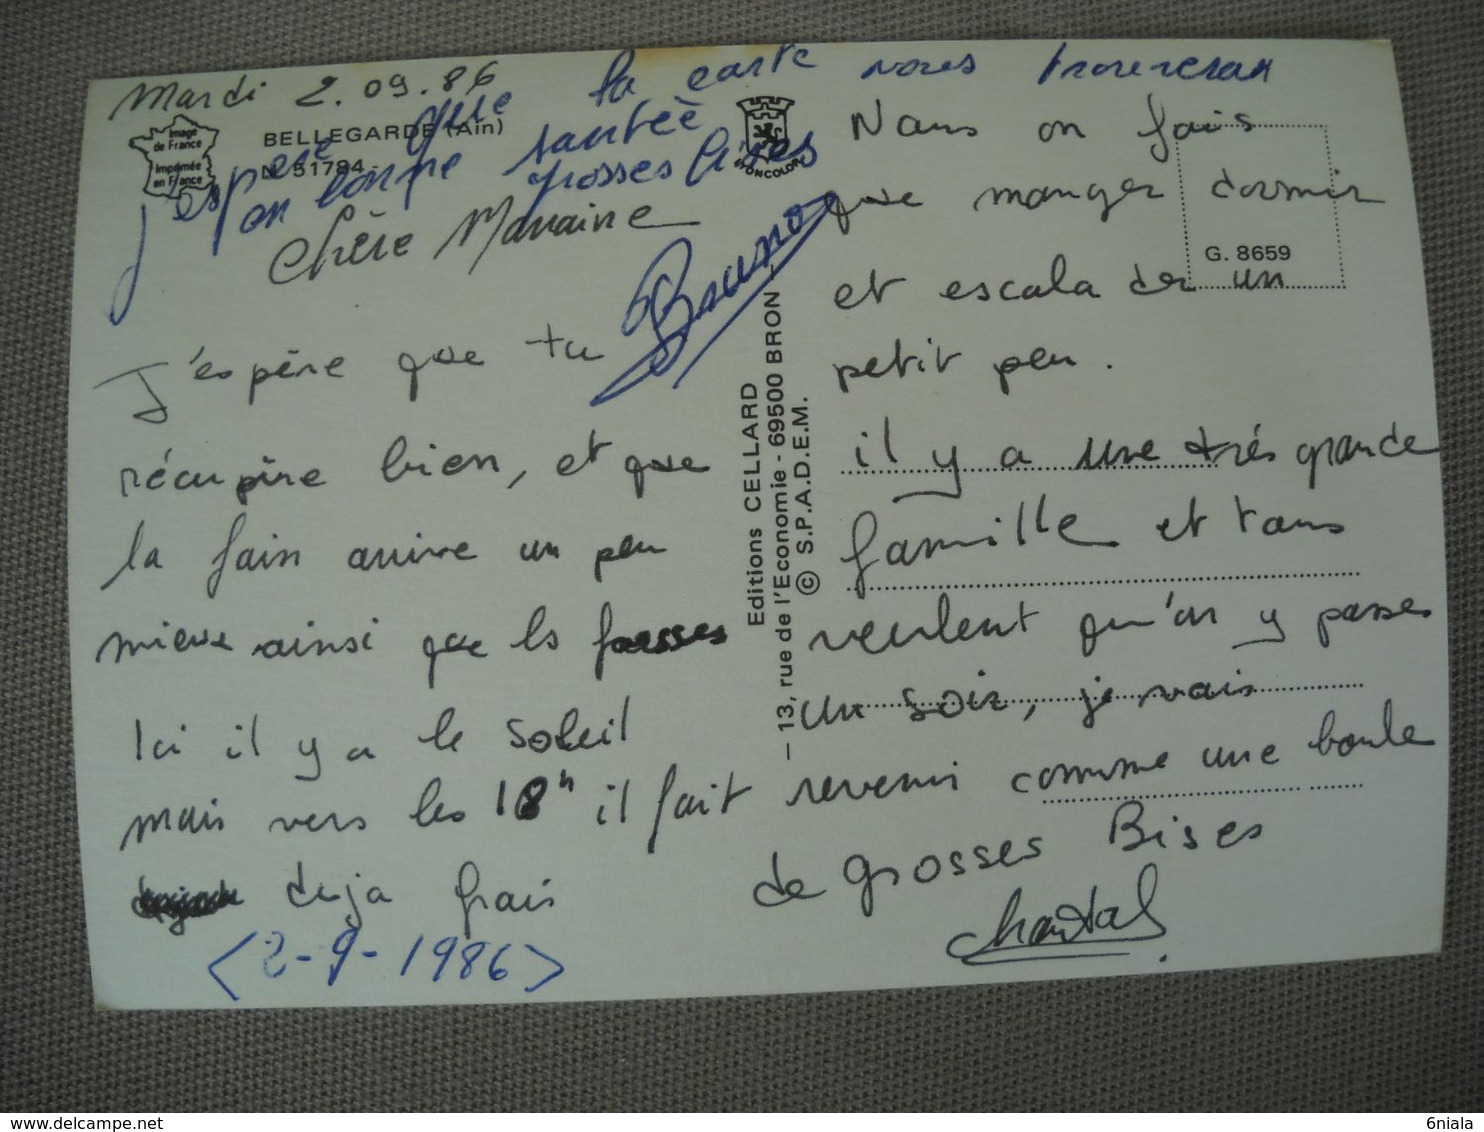 Mardi 2.09.86
Image
de France
Imprimée
en France
BELLEGARDE (Ain)
N. 51784
j'espere que la carte vous trouveran
on bonne santéé
grosses bises
Bruno
Chère Marraine
J'espère que tu
récupère bien, et que
la fain arrive un peu
mieux ainsi que ls forsses
Ici il y a le soleil
mais vers les 18h il fait
deja frais
(2-9-1986)
Editions CELLARD
— 13, rue de l'Economie - 69500 BRON
© S.P.A.D.E.M.
G. 8659
Nous on fais
que manger dormir
et escala der un
petit peu.
il y a une très grande
famille et tous
veulent qu'on y passes
un soir, je vais
revenir comme une boule
de grosses Bises
Chantal
delcampe.net
6niala